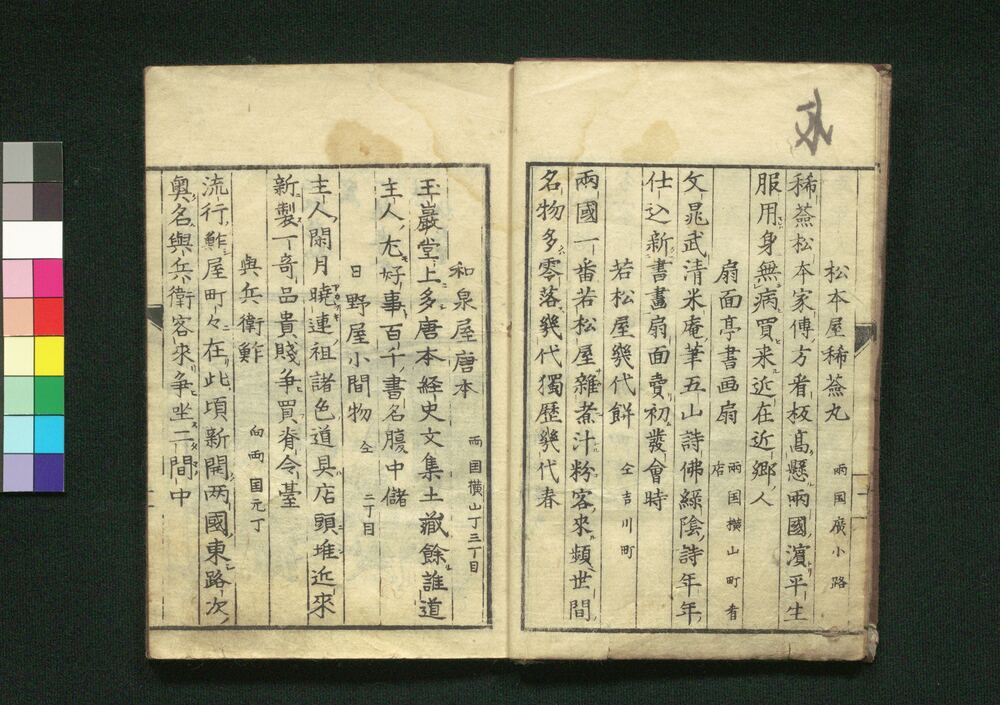 松本屋稀薟丸 兩国廣小路
稀薟松本家傳方看板高懸兩國濵平生
服用身無病買来近在近郷人
扇面亭書画扇 兩国横山町肴店
文晁武清米庵筆五山詩佛緑陰詩年年
仕込新書畫扇面賣初發會時
若松屋幾代餅 仝吉川町
兩國一番若松屋雜煮汁粉客來頻世間
名物多零落幾代獨歴幾代春
和泉屋唐本 両国横山丁三丁目
玉巖堂上多唐本経史文集土藏餘誰道
主人尤好事百千書名腹中儲
日野屋小間物 仝二丁目
主人閑月曉連祖諸色道具店頭堆近來
新製一奇品貴賤争買脊令臺
與兵衛鮓 向両国元丁
流行鮓屋町々在此頃新開両國東路次
奥名與兵衛客來争坐二間中